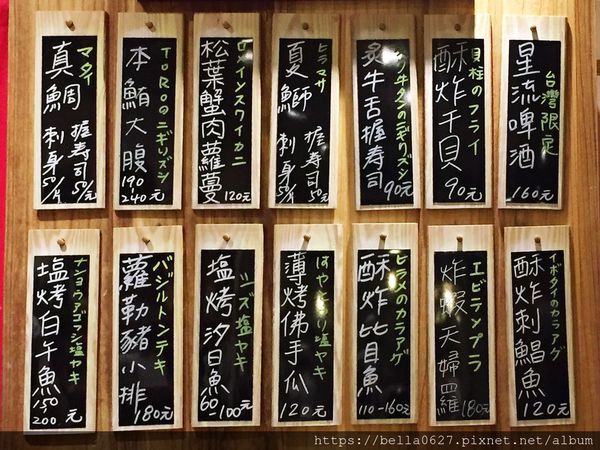 台灣限定
星流啤酒
160元
貝柱のフライ
酥炸干貝
90元
炙牛舌握壽司
90元
ヒラマサ
夏鰤
握壽司 50元
刺身 50/片
ロメインスワイカニ
松葉蟹肉蘿蔓
120元
TOROのニギリズシ
本鮪大腹
190
240元
マダイ
真鯛
握壽司 50元
刺身 50/片
イボダイのカラアゲ
酥炸刺鯧魚
120元
エビテンプラ
炸蝦天婦羅
180元
ヒラメのカラアゲ
酥炸比目魚
110-160元
はやとうり塩ヤキ
薄烤佛手瓜
120元
シズ塩ヤキ
塩烤汐目魚
60 100元
バジルトンテキ
蘿勒豬小排
180元
ナンヨウアゴナシ塩ヤキ
塩烤白午魚
150
200元
https://bella0627.pixnet.net/album